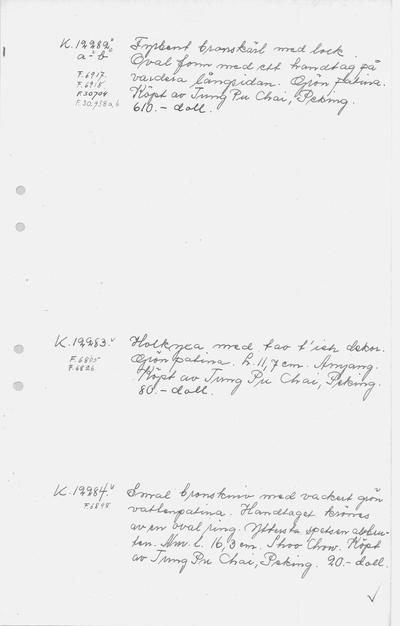 K.12282
a-b
F.6917.
F.6918
F.30704
F.30,958 a, b
Fyrbent bronskärl med lock.
Oval form med ett handtag på
vardera långsidan. Grön patina.
Köpt av Tung Pu Chai, Peking.
610.- doll.
K.12283.
F.6825
F.6826
Holkyxa med tao t'ieh dekor.
Grön patina. L. 11,7 cm. Anyang.
Köpt av Tung Pu Chai, Peking.
80.- doll.
K.12284.
F.6898
Smal bronskniv med vackert grön
vattenpatina. Handtaget krönes
av en oval ring. Yttersta spetsen abbru-
ten. Nuv. L. 16,3 cm. Shou Chou. Köpt
av Tung Pu Chai, Peking. 20.- doll.